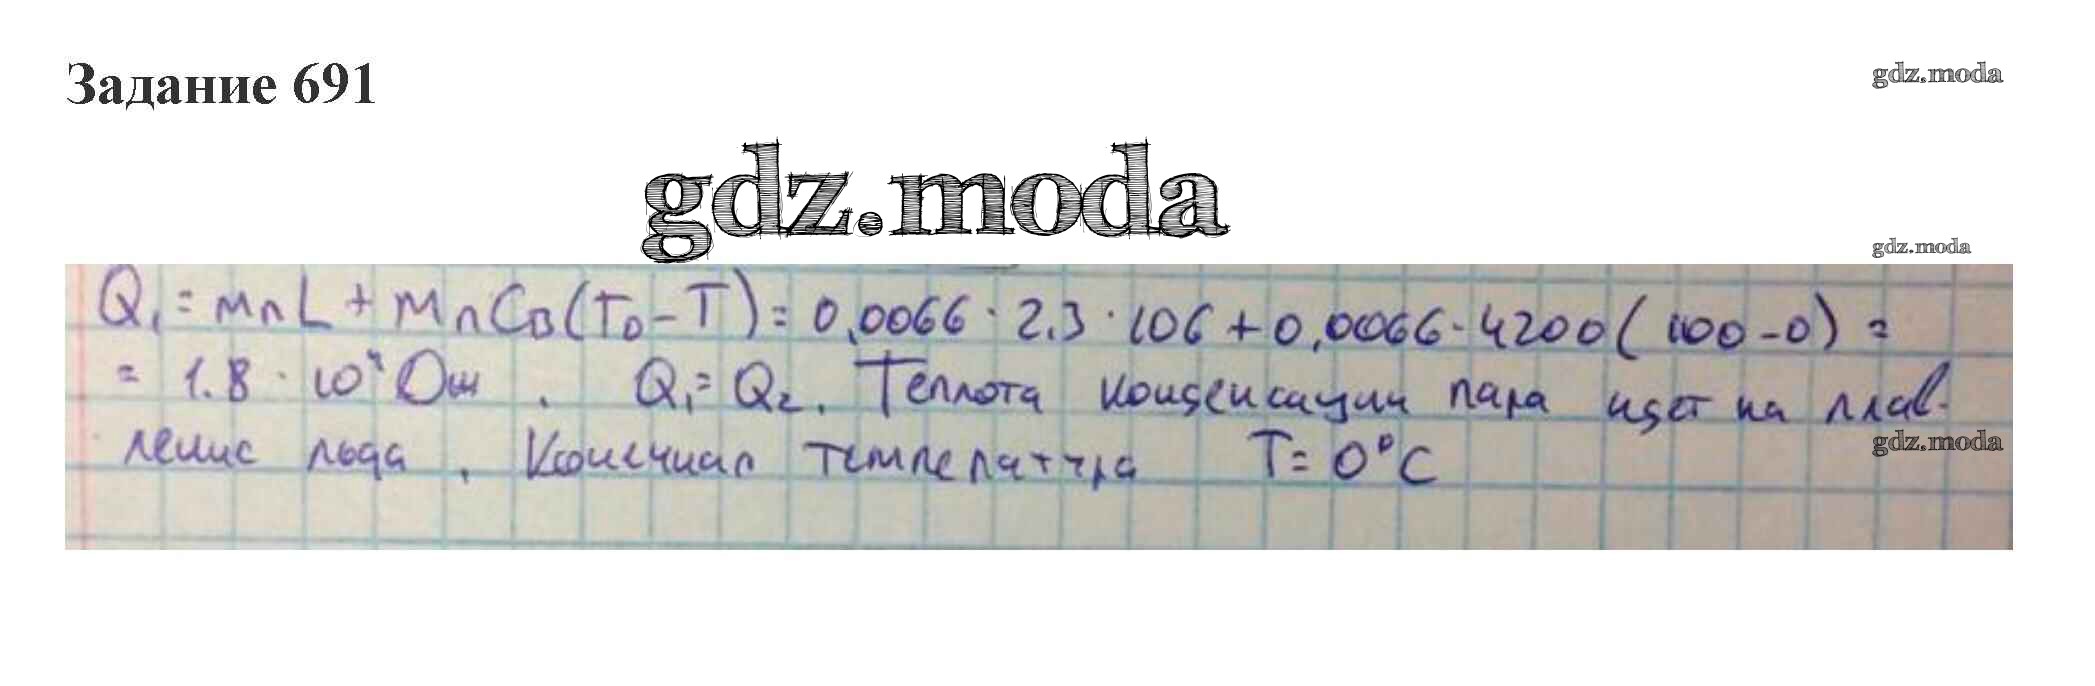 Задание 691
gdz.moda
gdz.moda
gdz.moda
Q₁ = mпL + mпCв(T₀ - T) = 0,0066 · 2.3 · 106 + 0,0066 · 4200 (100 - 0) =
= 1.8 · 10⁴ Дж . Q₁ = Q₂. Теплота конденсации пара идет на плав-
ление льда . Конечная температура T = 0°C
gdz.moda